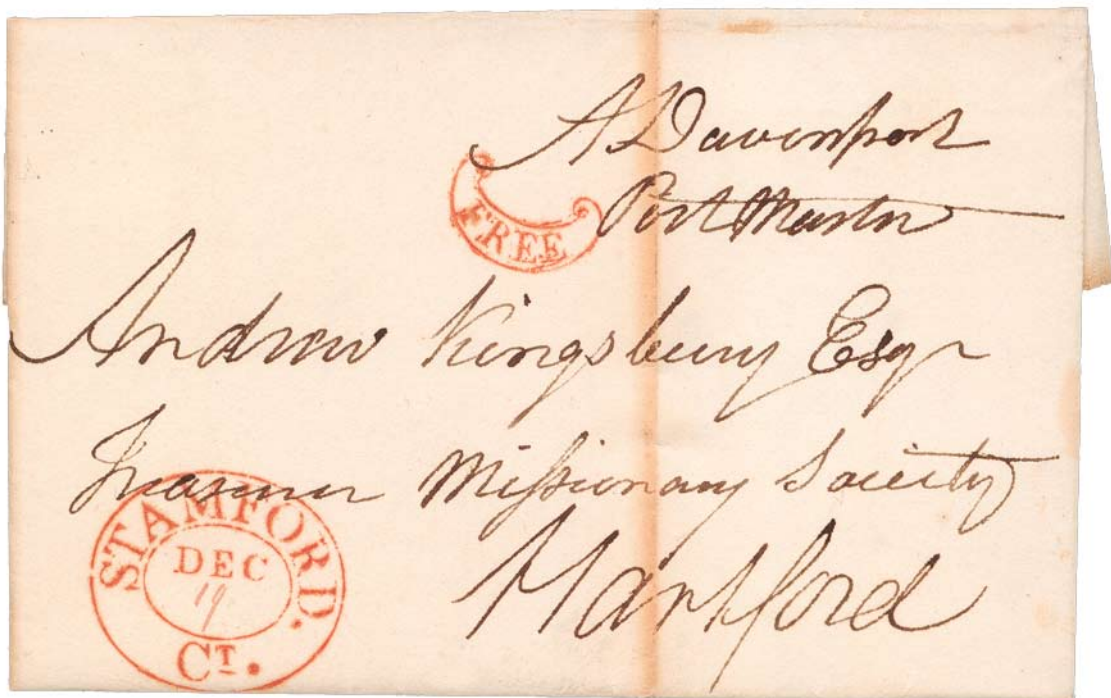 A Davenport
Post Master
FREE
Andrew Kingsbury Esqr
Treasurer Missionary Society
Hartford
STAMFORD.
DEC
19
CT.